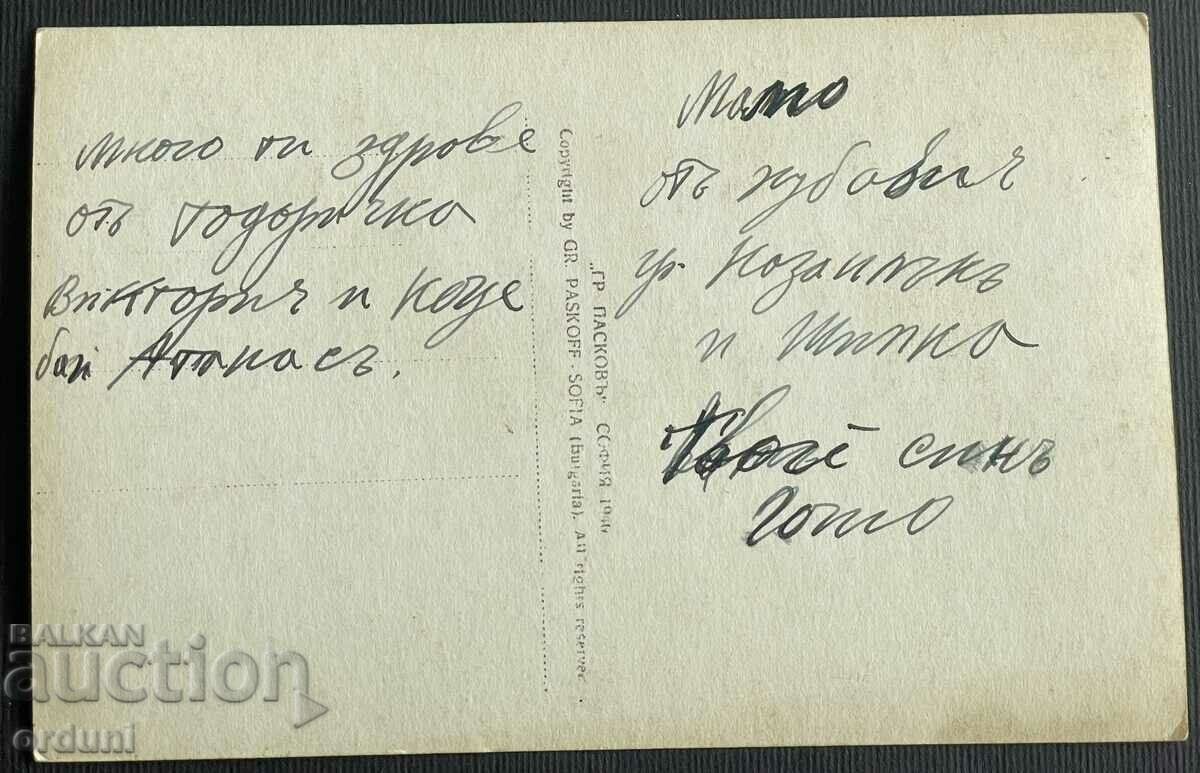 много ти здраве
отъ тодоричка
Виктория и Коце
бай Атанасъ.
„ГР. ПАСКОВЪ“ СОФИЯ 19
Copyright by GR. PASKOFF - SOFIA (Bulgaria). All rights reserved.
Мамо
отъ хубавия
гр. Казанлъкъ
и Шипка
твоя синъ
Гошо
BALKAN
auction
orduni